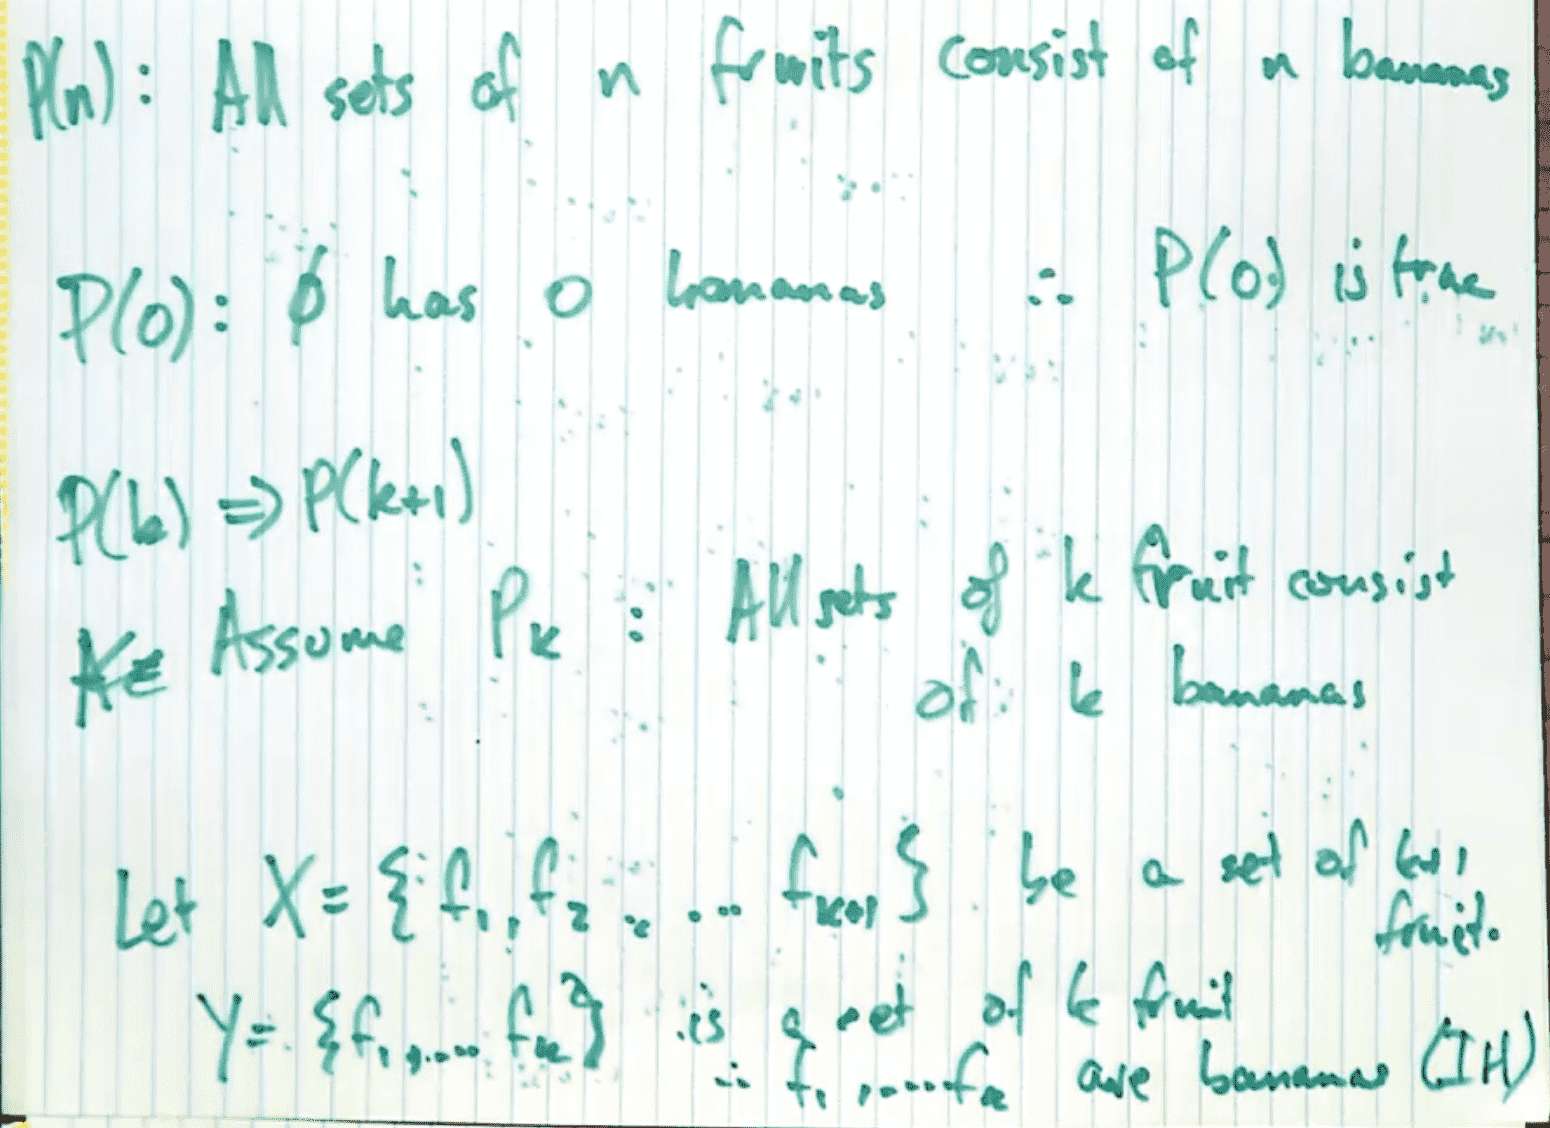 P(n): All sets of n fruits consist of n bananas
P(0): ∅ has 0 bananas ∴ P(0) is true
P(k) ⇒ P(k+1)
Assume Pk : All sets of k fruit consist
of k bananas
Let X = {f1, f2 ..... fk+1} be a set of k+1
fruit.
Y = {f1,.... fk} is a set of k fruit
∴ f1,.....fk are bananas (IH)